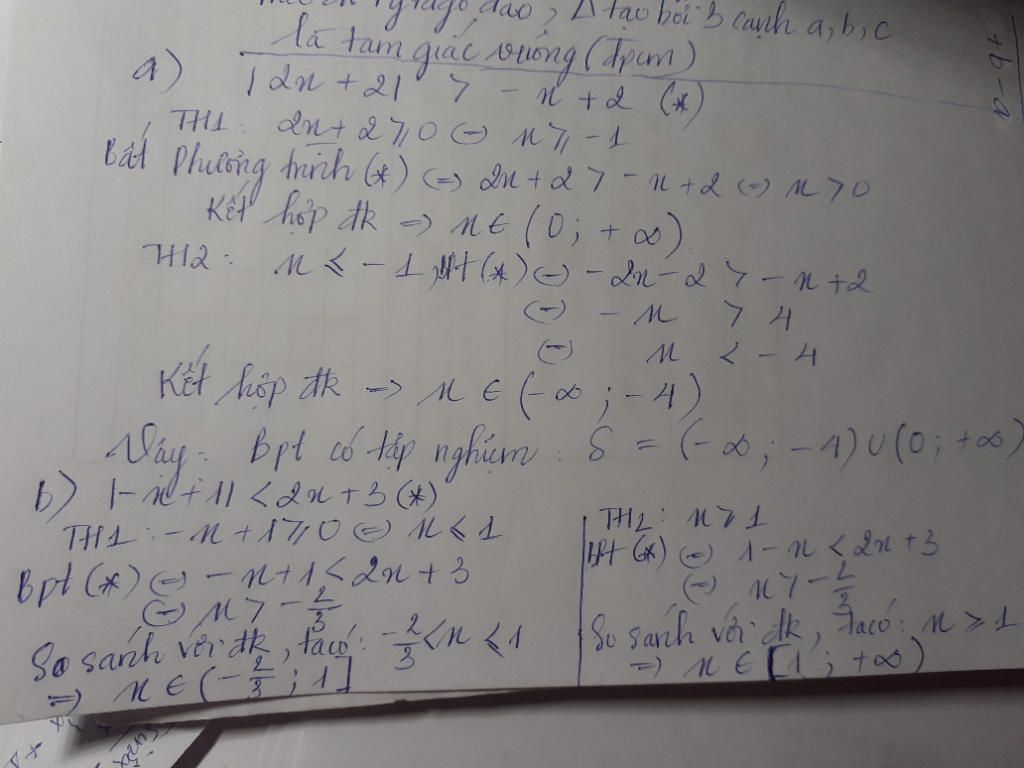 Pytago đảo, Δ tạo bởi 3 cạnh a, b, c
là tam giác vuông (đpcm)
a) |2x + 2| > - x + 2 (*)
TH1: 2x + 2 ≥ 0 ⇔ x ≥ -1
Bất Phương trình (*) ⇔ 2x + 2 > - x + 2 ⇔ x > 0
Kết hợp đk ⇒ x ∈ (0 ; + ∞)
TH2: x ≤ - 1, bpt (*) ⇔ - 2x - 2 > - x + 2
⇔ - x > 4
⇔ x < - 4
Kết hợp đk ⇒ x ∈ (-∞ ; -4)
Vậy Bpt có tập nghiệm: S = (-∞ ; -4) ∪ (0 ; +∞)
b) |-x + 1| < 2x + 3 (*)
TH1: -x + 1 ≥ 0 ⇔ x ≤ 1
Bpt (*) ⇔ -x + 1 < 2x + 3
⇔ x > -2/3
So sánh với đk, ta có: -2/3 < x ≤ 1
⇒ x ∈ (-2/3 ; 1]
TH2: x ≥ 1
bpt (*) ⇔ 1 - x < 2x + 3
⇔ x > -2/3
So sánh với đk, ta có: x ≥ 1
⇒ x ∈ [1 ; +∞)